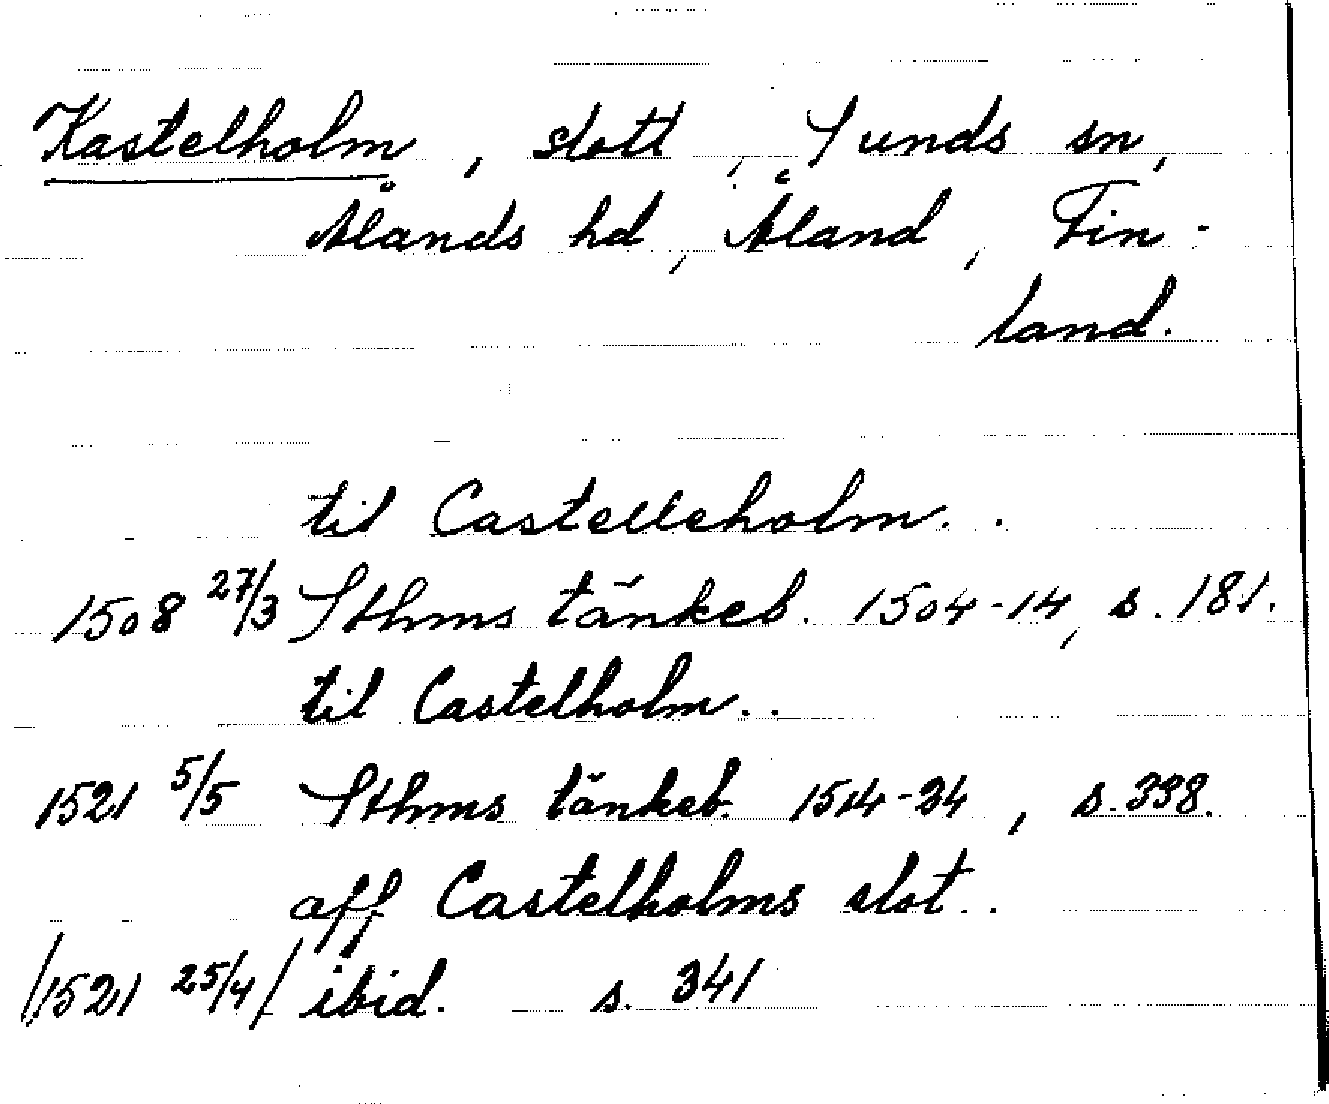 Kastelholm, slott, Sunds sn,
Ålands hd, Åland, Fin-
land.
til Castelleholm..
1508 27/3 Sthms tänkeb. 1504-14, s. 181.
til Castelholm..
1521 5/5 Sthms tänkeb. 1514-24, s. 338.
aff Castelholms slot..
/1521 25/4/ ibid. s. 341